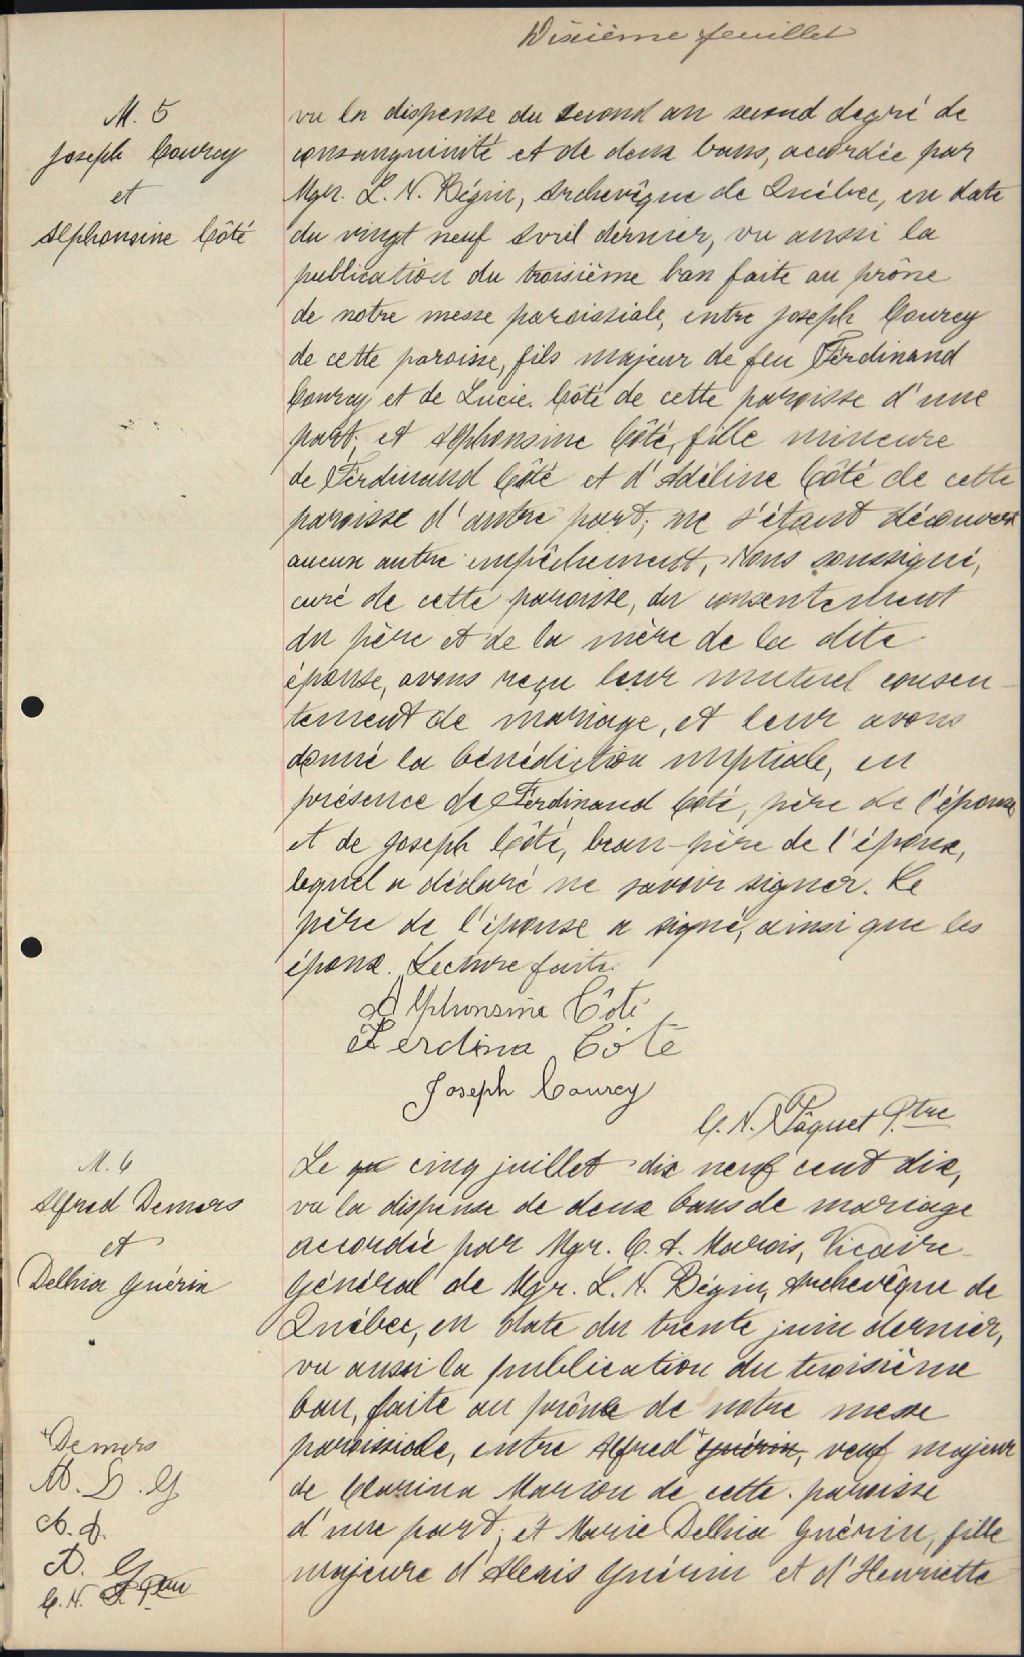 Dixième feuillet
M. 5
Joseph Courcy
et
Alphonsine Côté
vu la dispense du second au second degré de
consanguinité et de deux bans, accordée par
Mgr. L. N. Bégin, Archevêque de Québec, en date
du vingt neuf Avril dernier, vu aussi la
publication du troisième ban faite au prône
de notre messe paroissiale, entre Joseph Courcy
de cette paroisse, fils majeur de feu Ferdinand
Courcy et de Lucie Côté de cette paroisse d'une
part, et Alphonsine Côté, fille mineure
de Ferdinand Côté et d'Adéline Côté de cette
paroisse d'autre part; ne s'étant découvert
aucun autre empêchement, Nous soussigné,
curé de cette paroisse, du consentement
du père et de la mère de la dite
épouse, avons reçu leur mutuel consen-
tement de mariage, et leur avons
donné la bénédiction nuptiale, en
présence de Ferdinand Côté, père de l'épouse
et de Joseph Côté, beau-père de l'époux,
lequel a déclaré ne savoir signer. Le
père de l'épouse a signé, ainsi que les
époux. Lecture faite.
Alphonsine Côté
Ferdina Côté
Joseph Courcy
C. N. Pâquet Ptre
M. 6
Alfred Demers
et
Delhia Guérin
Le qu cinq juillet dix neuf cent dix,
vu la dispense de deux bans de mariage
accordée par Mgr. C. A. Marois, Vicaire-
Général de Mgr. L. N. Bégin, Archevêque de
Québec, en date du trente juin dernier,
vu aussi la publication du troisième
ban, faite au prône de notre messe
paroissiale, entre Alfred + Guérin, veuf majeur
de Clarina Marion de cette paroisse
d'une part; et Marie Delhia Guérin, fille
majeure d'Alexis Guérin et d'Henriette
+ Demers
M. D. G
A. D.
A. G
C. N. P Ptre